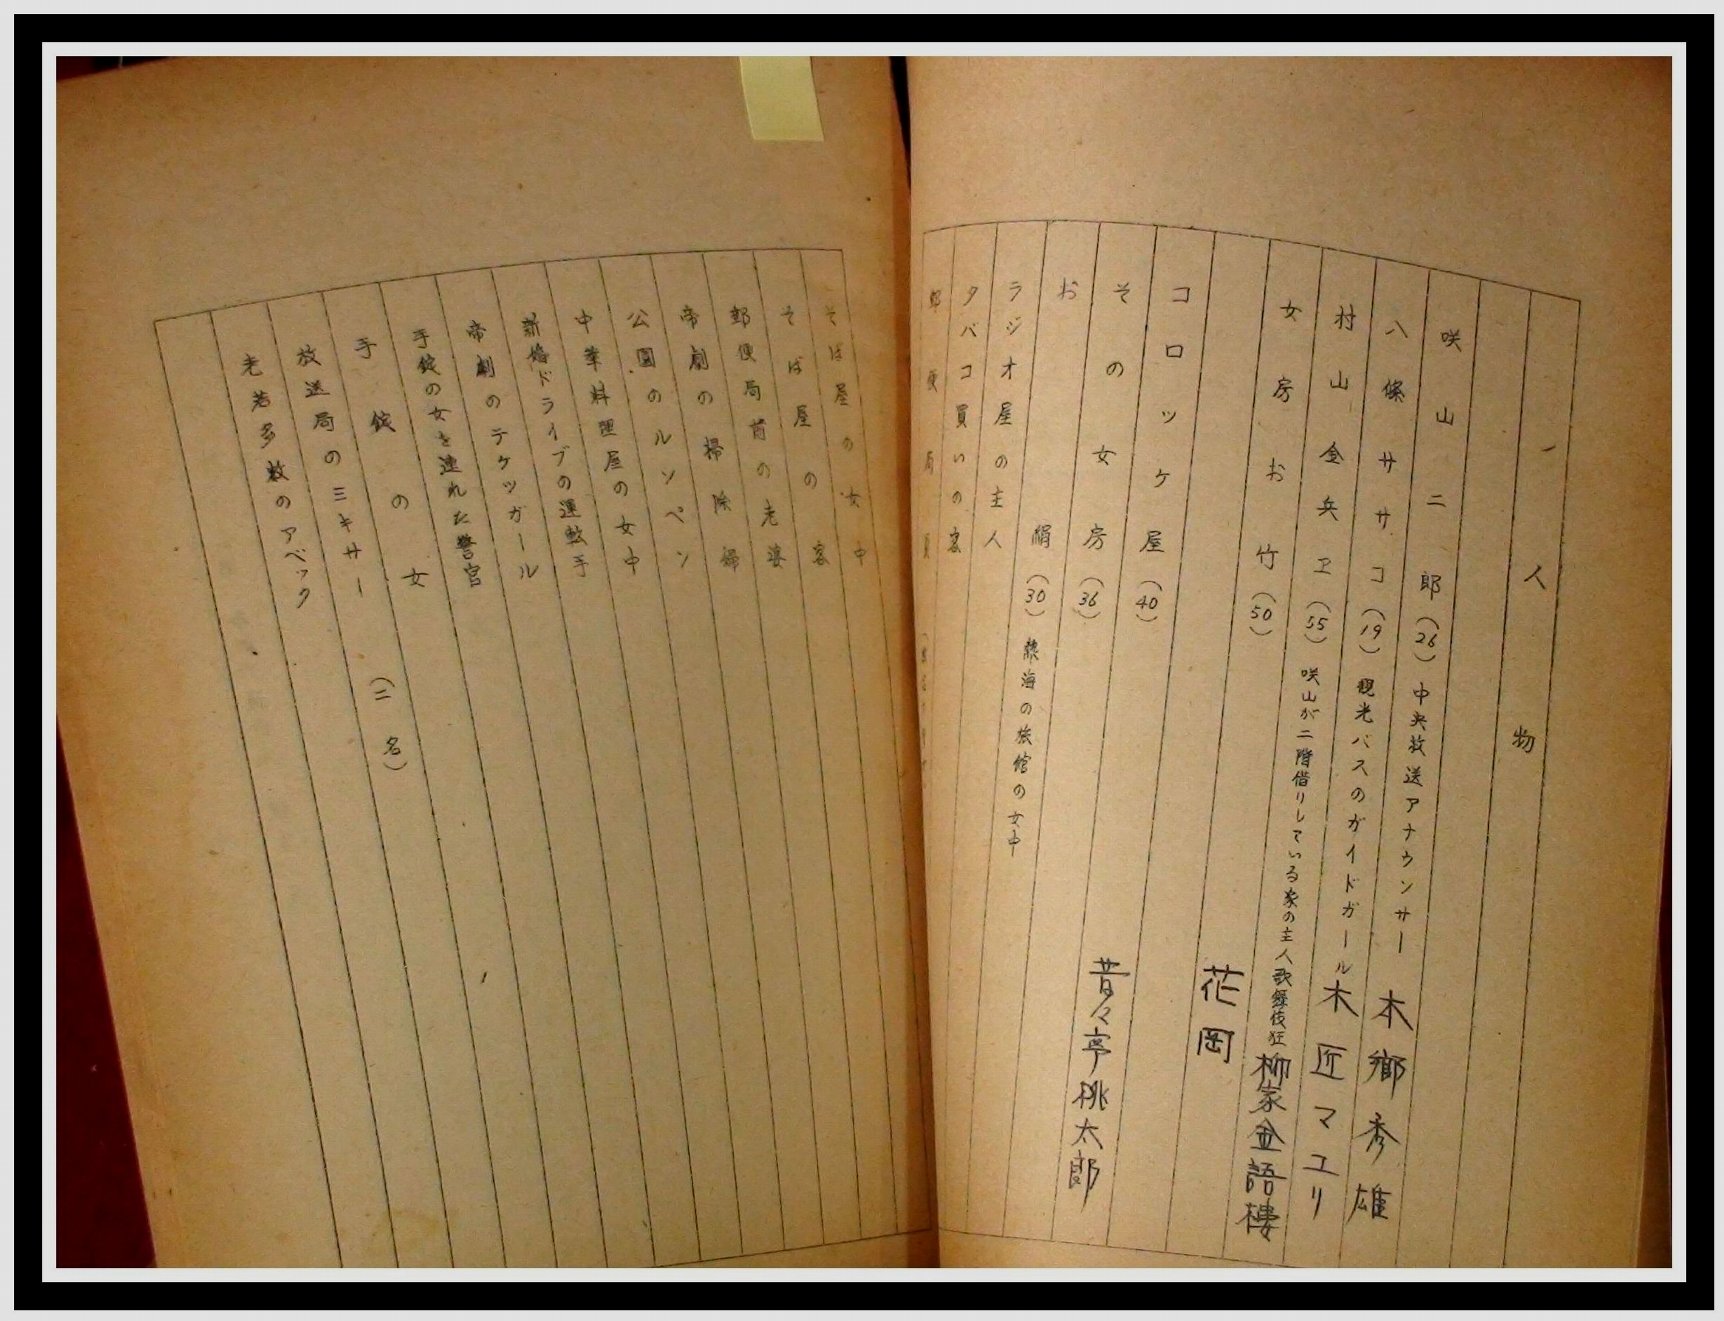 人物
咲山二郎(26)中央放送アナウンサー 本郷秀雄
八條ササコ(19)観光バスのガイドガール 木匠マユリ
村山金兵ヱ(55)咲山が二階借りしている家の主人歌舞伎狂 柳家金語樓
女房お竹(50) 花岡
コロッケ屋(40)
その女房(36) 昔々亭桃太郎
お絹(30)熱海の旅館の女中
ラジオ屋の主人
タバコ買いの客
郵便局員
そば屋の女中
そば屋の客
郵便局前の老婆
帝劇の掃除婦
公園のルンペン
中華料理屋の女中
新婚ドライブの運転手
帝劇のテケツガール
手錠の女を連れた警官
手錠の女(二名)
放送局のミキサー
老若多数のアベック